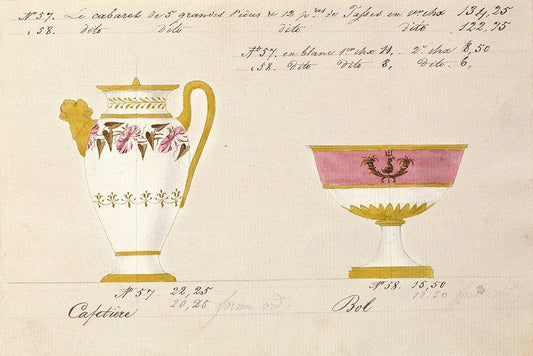 N° 57. Le cabaret de 5 grandes Pièces & 12 p.res de Tasses en 1er chx 134,25
" 58. dito dito dito dito 122,75
N° 57. en blanc 1er chx 11, - 2e. chx 8,50
" 58. dito dito 8, dito. 6,
N° 57. 22,25
20,25 forme ord.
Cafetière
N° 58. 15,50
12.50
Bol